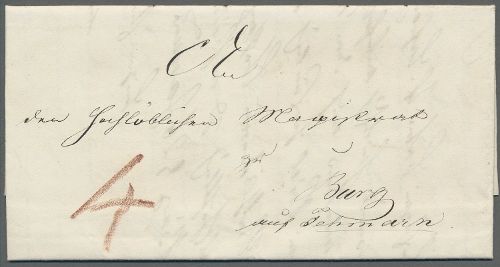 An
den Hochlöblichen Magistrat
zu
Burg
auf Fehmarn.
4